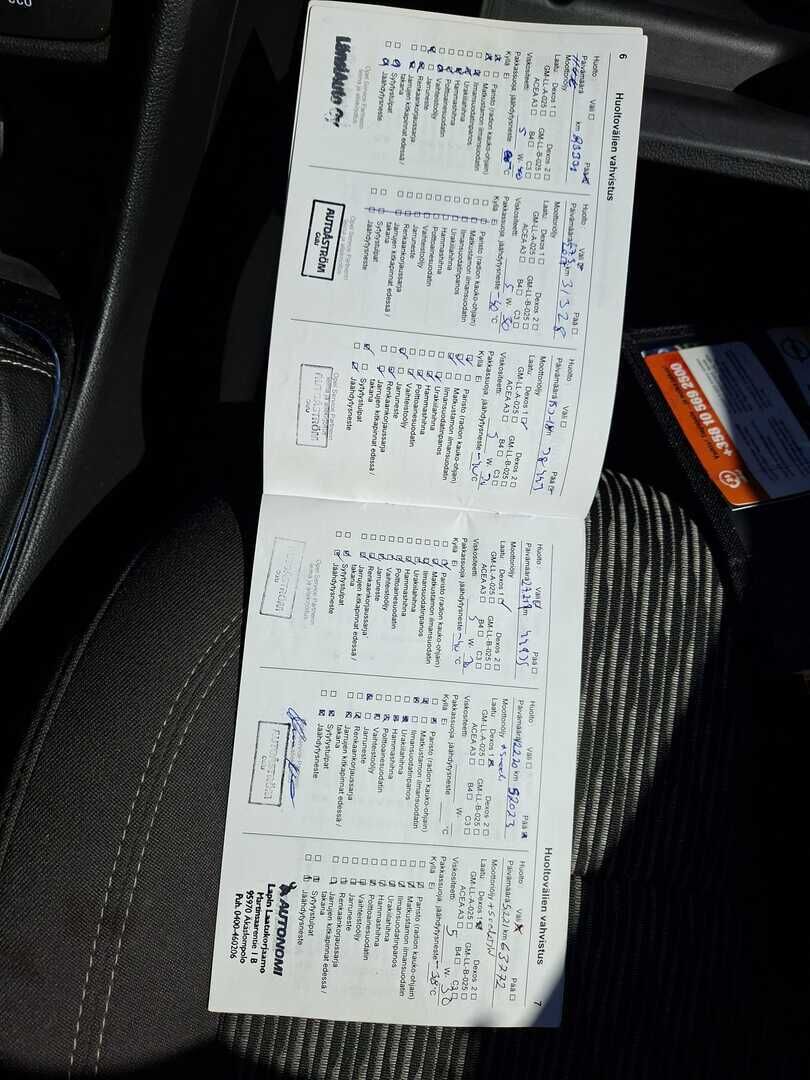 6
Huoltovälien vahvistus
Huolto Väli ☐ Pää
Päivämäärä km
Moottoriöljy
Laatu: Dexos 1 ☐ Dexos 2 ☐
GM-LL-A-025 ☐ GM-LL-B-025 ☐
ACEA A3 ☐ B4 ☐ C3 ☐
Viskositeetti: 5 W-
Pakkassuoja, jäähdytysneste °C
Kyllä Ei
Paristo (radion kauko-ohjain)
Matkustamon ilmansuodatin
Ilmansuodatinpanos
Urakiilahihna
Hammashihna
Polttoainesuodatin
Vaihteistoöljy
Jarruneste
Renkaankorjaussarja
Jarrujen kitkapinnat edessä /
takana
Sytytystulpat
Jäähdytysneste
Opel Service Partnerin
leima ja allekirjoitus
LänsiAuto Oy
Huolto Väli Pää ☐
Päivämäärä km 31328
Moottoriöljy
Laatu: Dexos 1 ☐ Dexos 2 ☐
GM-LL-A-025 ☐ GM-LL-B-025 ☐
ACEA A3 ☐ B4 ☐ C3 ☐
Viskositeetti: 5 W- 30
Pakkassuoja, jäähdytysneste -40 °C
Kyllä Ei
Paristo (radion kauko-ohjain)
Matkustamon ilmansuodatin
Ilmansuodatinpanos
Urakiilahihna
Hammashihna
Polttoainesuodatin
Vaihteistoöljy
Jarruneste
Renkaankorjaussarja
Jarrujen kitkapinnat edessä /
takana
Sytytystulpat
Jäähdytysneste
AUTOÅSTRÖM
Oulu
Huolto Väli ☐ Pää
Päivämäärä km
Moottoriöljy
Laatu: Dexos 1 Dexos 2 ☐
GM-LL-A-025 ☐ GM-LL-B-025 ☐
ACEA A3 ☐ B4 ☐ C3 ☐
Viskositeetti: 5 W-
Pakkassuoja, jäähdytysneste °C
Kyllä Ei
Paristo (radion kauko-ohjain)
Matkustamon ilmansuodatin
Ilmansuodatinpanos
Urakiilahihna
Hammashihna
Polttoainesuodatin
Vaihteistoöljy
Jarruneste
Renkaankorjaussarja
Jarrujen kitkapinnat edessä /
takana
Sytytystulpat
Jäähdytysneste
Opel Service Partnerin
leima ja allekirjoitus
AUTOÅSTRÖM
Oulu
7
Huoltovälien vahvistus
Huolto Väli Pää ☐
Päivämäärä km
Moottoriöljy
Laatu: Dexos 1 Dexos 2 ☐
GM-LL-A-025 ☐ GM-LL-B-025 ☐
ACEA A3 ☐ B4 ☐ C3 ☐
Viskositeetti: 5 W- 30
Pakkassuoja, jäähdytysneste -40 °C
Kyllä Ei
Paristo (radion kauko-ohjain)
Matkustamon ilmansuodatin
Ilmansuodatinpanos
Urakiilahihna
Hammashihna
Polttoainesuodatin
Vaihteistoöljy
Jarruneste
Renkaankorjaussarja
Jarrujen kitkapinnat edessä /
takana
Sytytystulpat
Jäähdytysneste
Opel Service Partnerin
leima ja allekirjoitus
AUTOÅSTRÖM
Oulu
Huolto Väli ☐ Pää
Päivämäärä km 52023
Moottoriöljy
Laatu: Dexos 1 Dexos 2 ☐
GM-LL-A-025 ☐ GM-LL-B-025 ☐
ACEA A3 ☐ B4 ☐ C3 ☐
Viskositeetti: W-
Pakkassuoja, jäähdytysneste °C
Kyllä Ei
Paristo (radion kauko-ohjain)
Matkustamon ilmansuodatin
Ilmansuodatinpanos
Urakiilahihna
Hammashihna
Polttoainesuodatin
Vaihteistoöljy
Jarruneste
Renkaankorjaussarja
Jarrujen kitkapinnat edessä /
takana
Sytytystulpat
Jäähdytysneste
AUTOÅSTRÖM
Oulu
Huolto Väli Pää ☐
Päivämäärä km 63272
Moottoriöljy
Laatu: Dexos 1 Dexos 2 ☐
GM-LL-A-025 ☐ GM-LL-B-025 ☐
ACEA A3 ☐ B4 ☐ C3 ☐
Viskositeetti: 5 W- 30
Pakkassuoja, jäähdytysneste -38 °C
Kyllä Ei
Paristo (radion kauko-ohjain)
Matkustamon ilmansuodatin
Ilmansuodatinpanos
Urakiilahihna
Hammashihna
Polttoainesuodatin
Vaihteistoöljy
Jarruneste
Renkaankorjaussarja
Jarrujen kitkapinnat edessä /
takana
Sytytystulpat
Jäähdytysneste
AUTONOMI
Lapin Laatukorjaamo
Harrimaarentie 1 B
95970 Äkäslompolo
Puh. 0400-460206
+358 10 569 2500